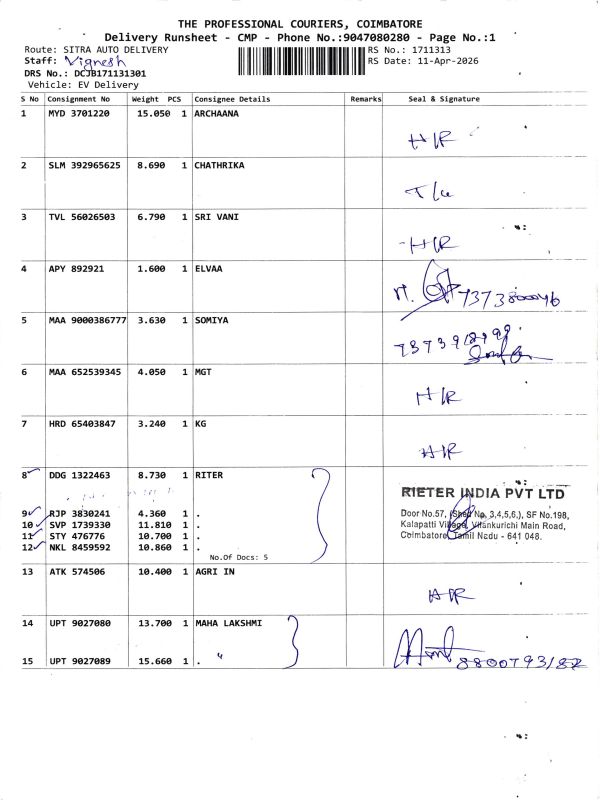 THE PROFESSIONAL COURIERS, COIMBATORE
Delivery Runsheet - CMP - Phone No.:9047080280 - Page No.:1
Route: SITRA AUTO DELIVERY RS No.: 1711313
Staff: Vignesh RS Date: 11-Apr-2026
DRS No.: DCJB171131301
Vehicle: EV Delivery
S No Consignment No Weight PCS Consignee Details Remarks Seal & Signature
1 MYD 3701220 15.050 1 ARCHAANA
H/R
2 SLM 392965625 8.690 1 CHATHRIKA
3 TVL 56026503 6.790 1 SRI VANI
H/R
4 APY 892921 1.600 1 ELVAA
5 MAA 9000386777 3.630 1 SOMIYA
6 MAA 652539345 4.050 1 MGT
H/R
7 HRD 65403847 3.240 1 KG
H/R
8 DDG 1322463 8.730 1 RITER
RIETER INDIA PVT LTD
9 RJP 3830241 4.360 1 .
Door No.57, (Shed No. 3,4,5,6,), SF No.198,
10 SVP 1739330 11.810 1 .
Kalapatti Village, Vilankurichi Main Road,
11 STY 476776 10.700 1 .
Coimbatore, Tamil Nadu - 641 048.
12 NKL 8459592 10.860 1 .
No.Of Docs: 5
13 ATK 574506 10.400 1 AGRI IN
H/R
14 UPT 9027080 13.700 1 MAHA LAKSHMI
15 UPT 9027089 15.660 1 . "